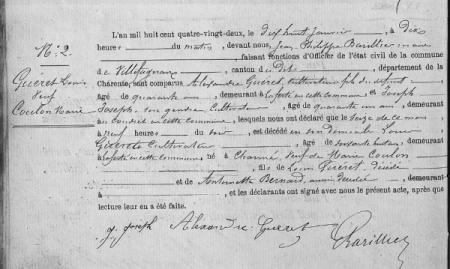 N: 2
Gueret Louis
Veuf
Coulon Marie
L'an mil huit cent quatre-vingt-deux, le Dix huit Janvier, à Dix
heures du matin, devant nous, Jean Philippe Barillier, maire
faisant fonctions d'Officier de l'état civil de la commune
de Villefagnan, canton du Dit, département de la
Charente, sont comparus Alexandre Gueret, cultivateur fils du défunt
âgé de quarante ans, demeurant en cette commune et Joseph
Joseph, son gendre, Cultivateur, âgé de quarante un ans, demeurant
en cette commune, lesquels nous ont déclaré que le Seize de ce mois
à neuf heures du soir est décédé en son domicile Louis
Gueret Cultivateur, âgé de soixante huit ans, demeurant
en cette commune, né à Charmé, veuf de Marie Coulon
, fils de Louis Gueret, décédé
et de Antoinette Bernard, aussi décédée, demeurant
à , et les déclarants ont signé avec nous le présent acte, après que
lecture leur en a été faite.
g. joseph Alexandre Gueret Barillier